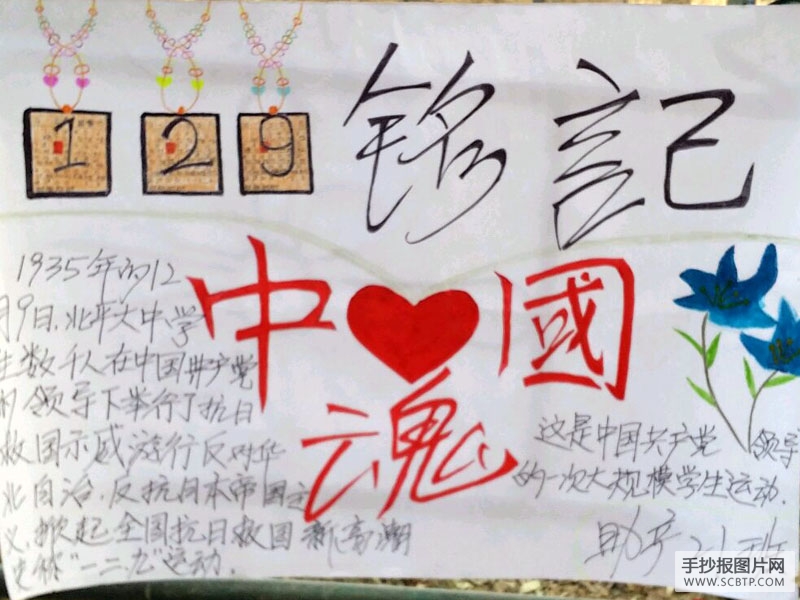 1 2 9
铭記
中國
魂
1935年的12
月9日,北平大中学
生数千人在中国共产党
的领导下举行了抗日
救国示威游行反对华
北自治.反抗日本帝国主
义,掀起全国抗日救国新高潮
史称"一二九"运动.
这是中国共产党领导
的一次大规模学生运动.
助产21班
手抄报图片网
WWW.SCBTP.COM